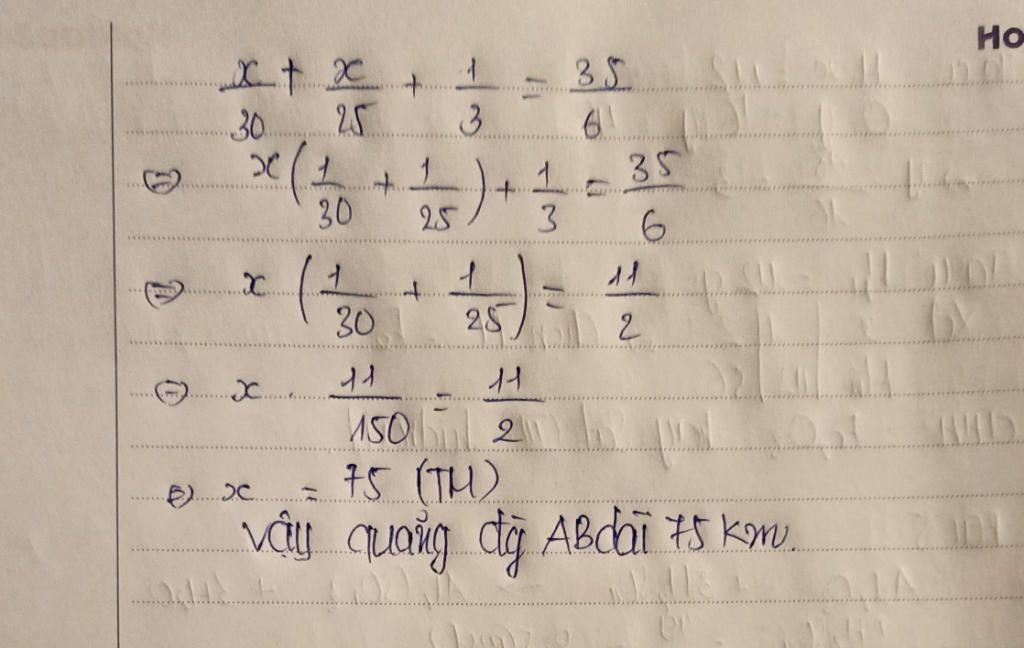 Ho
x/30 + x/25 + 1/3 = 35/6
⇔ x(1/30 + 1/25) + 1/3 = 35/6
⇔ x (1/30 + 1/25) = 11/2
⇔ x . 11/150 = 11/2
⇔ x = 75 (TM)
Vậy quãng đg AB dài 75 km.